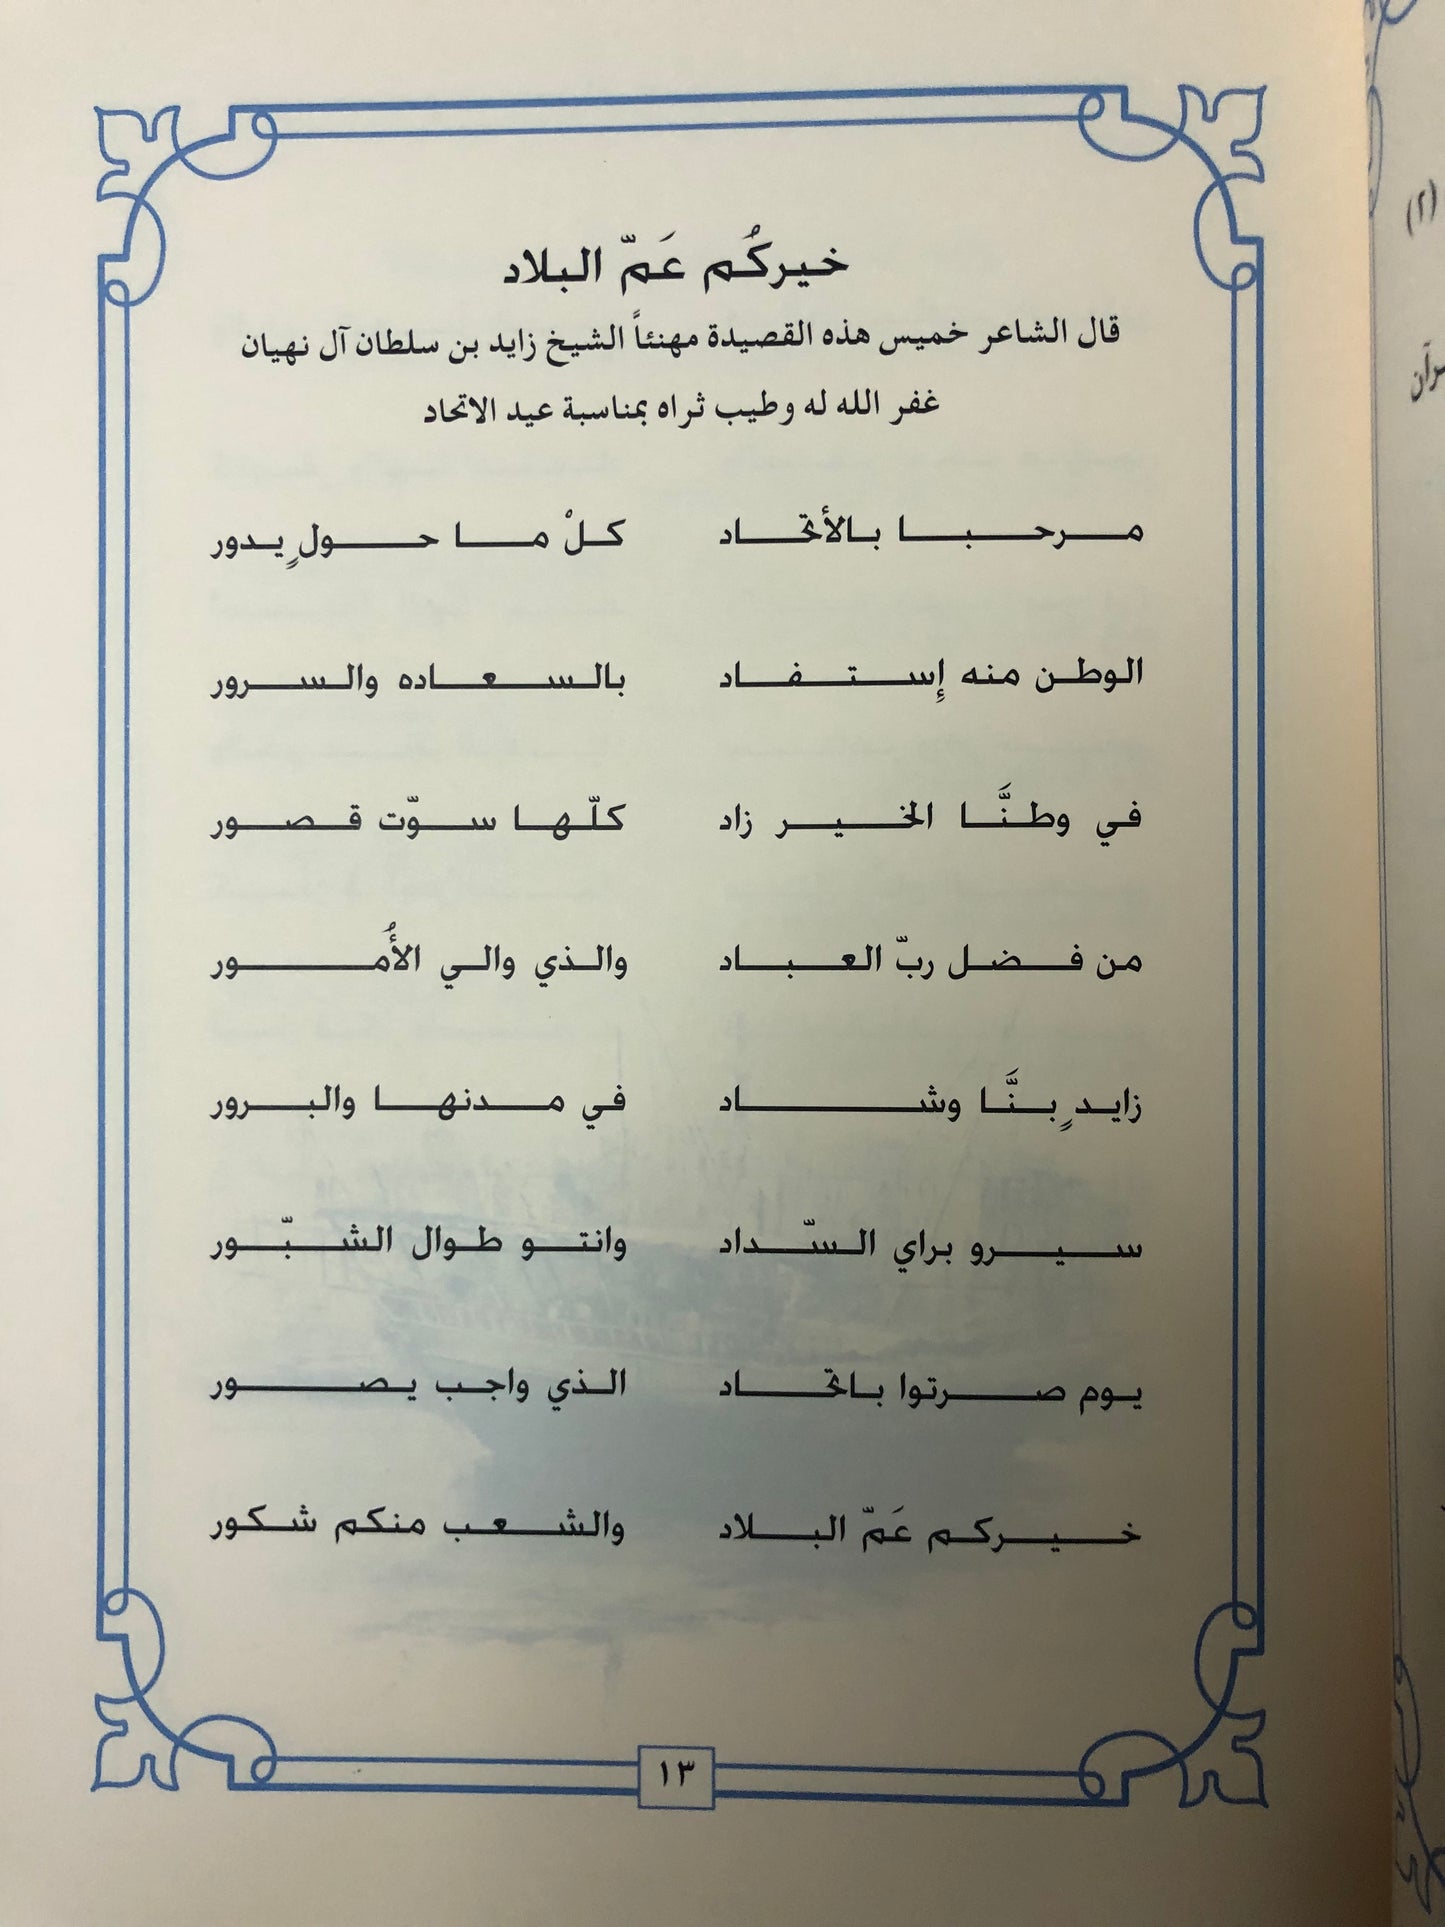 خيركُم عَمّ البلاد
قال الشاعر خميس هذه القصيدة مهنئاً الشيخ زايد بن سلطان آل نهيان
غفر الله له وطيب ثراه بمناسبة عيد الاتحاد
مرحبا بالأتحاد كلْ ما حولٍ يدور
الوطن منه إستفاد بالسعاده والسرور
في وطنَّا الخير زاد كلّها سوّت قصور
من فضل ربّ العباد والذي والي الأُمور
زايدٍ بنَّا وشاد في مدنها والبرور
سيرو براي السّداد وانتو طوال الشبّور
يوم صرتوا باتحاد الذي واجب يصور
خيركم عَمّ البلاد والشعب منكم شكور
١٣
(٢)